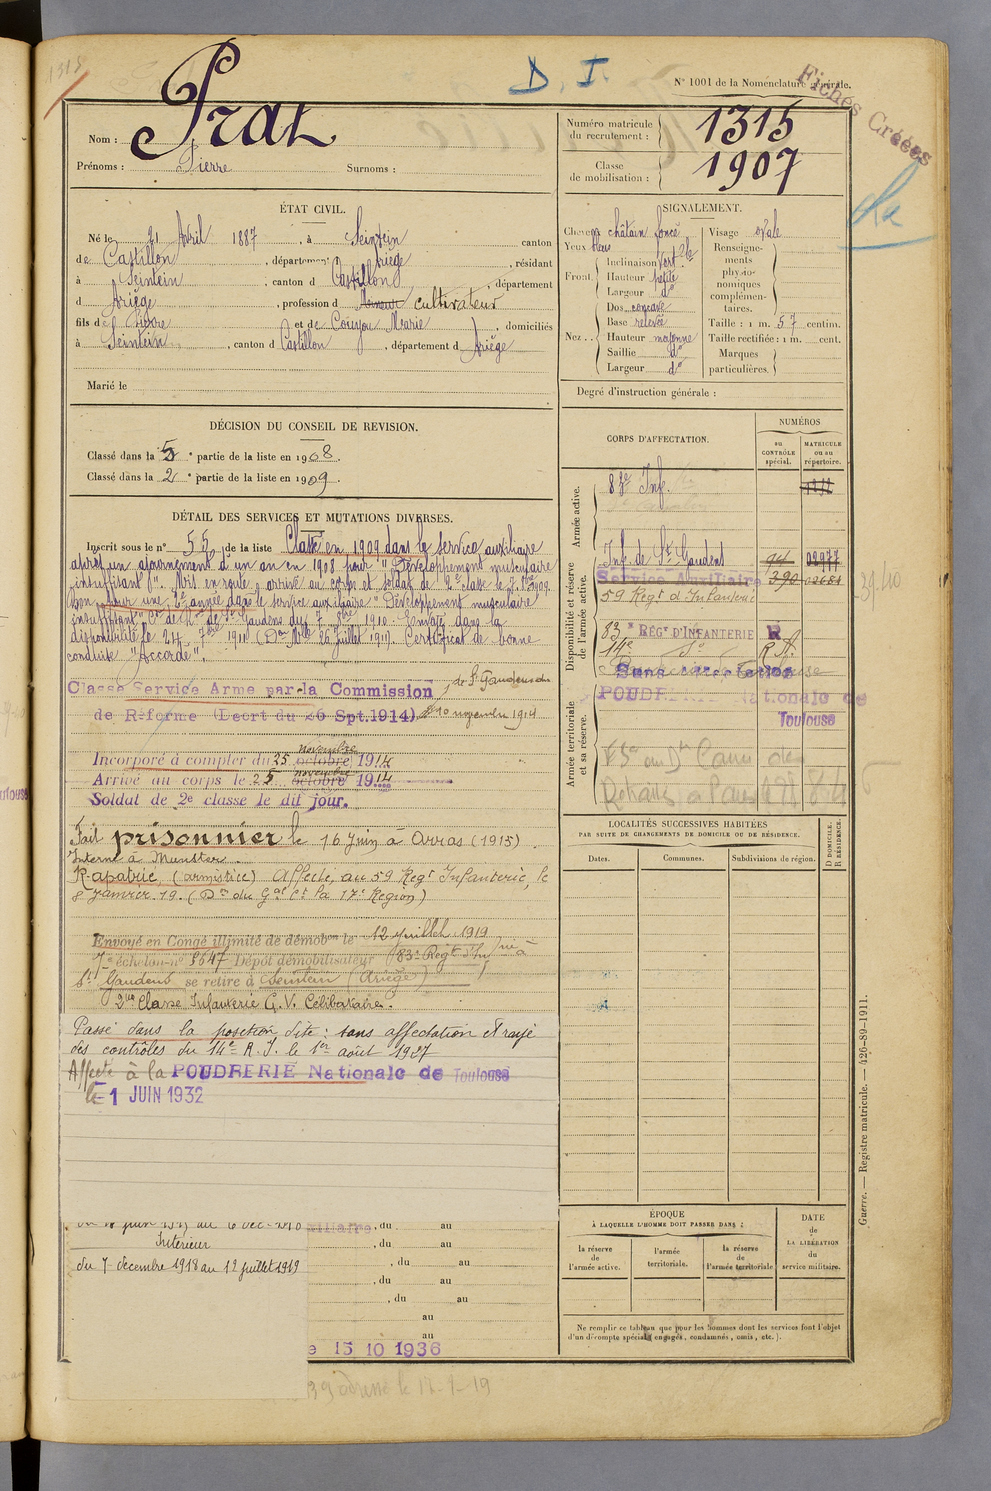 1315
D. I.
N° 1001 de la Nomenclature générale.
Fiches Créées
Nom : Prat
Prénoms : Pierre Surnoms :
Numéro matricule du recrutement : 1315
Classe de mobilisation : 1907
ÉTAT CIVIL.
Né le 21 Avril 1887, à Seintein canton
de Castillon, département Ariège, résidant
à Seintein, canton d Castillon, département
d Ariège, profession d cultivateur
fils de Pierre et de Couzou Marie, domiciliés
à Seintein, canton d Castillon, département d Ariège
Marié le
SIGNALEMENT.
Cheveux châtain foncé
Yeux bleus
Front Inclinaison vert.le
Hauteur petite
Largeur d°
Nez Dos concave
Base relevée
Hauteur moyenne
Saillie d°
Largeur d°
Visage ovale
Renseignements physionomiques complémentaires.
Taille : 1 m. 57 centim.
Taille rectifiée : 1 m. cent.
Marques particulières.
Degré d'instruction générale :
DÉCISION DU CONSEIL DE REVISION.
Classé dans la 5e partie de la liste en 1908.
Classé dans la 2e partie de la liste en 1909.
DÉTAIL DES SERVICES ET MUTATIONS DIVERSES.
Inscrit sous le n° 55 de la liste Classé en 1909 dans le service auxiliaire
après un ajournement d'un an en 1908 pour "Développement musculaire
insuffisant". Mis en route, arrivé au corps et soldat de 2e classe le 7 8bre 1909.
Bon pour une 2e année dans le service auxiliaire "Développement musculaire
insuffisant" de St Gaudens du 7 1910. Envoyé dans la
disponibilité le 24 7bre 1911 (Don Mlle 26 Juillet 1911). Certificat de bonne
conduite "Accordé".
Classe Service Armé par la Commission de St Gaudens du
de Réforme (Decret du 26 Spt.1914) 10 novembre 1914
Incorporé à compter du 25 octobre novembre 1914
Arrivé au corps le 25 octobre novembre 1914
Soldat de 2e classe le dit jour.
Fait prisonnier le 16 Juin à Arras (1915).
Interné à Munster.
Rapatrié, (armistice) Affecté, au 59 Regt Infanterie, le
8 Janvier 19. (Don du Gal Ct la 17e Région)
Envoyé en Congé illimité de démobon le 12 Juillet 1919
7e échelon n° 8647 Dépôt démobilisateur 83e Regt d'Inf rie à
St Gaudens se retire à Seintein (Ariège)
2me Classe Infanterie G. V. Célibataire.
Passé dans la position dite : sans affectation et rayé
des contrôles du 14e R. I. le 1er août 1927
Affecté à la POUDRERIE Nationale de Toulouse
le - 1 JUIN 1932
Intérieur
du 7 décembre 1918 au 12 juillet 1919
, du au
, du au
, du au
, du au
, du au
au
au
15 10 1936
CORPS D'AFFECTATION.
NUMÉROS
au CONTRÔLE spécial.
MATRICULE ou au répertoire.
Armée active.
83e Inf.
Disponibilité et réserve de l'armée active.
Inf. de St Gaudens 94 02977
Service Auxiliaire 390 02684
59 Regt d'Infanterie
83e RÉGt D'INFANTERIE R
14e d°
Sans affectation
Armée territoriale et sa réserve.
POUDRERIE Nationale de
Toulouse
LOCALITÉS SUCCESSIVES HABITÉES
PAR SUITE DE CHANGEMENTS DE DOMICILE OU DE RÉSIDENCE.
Dates. Communes. Subdivisions de région.
D DOMICILE. R RÉSIDENCE.
ÉPOQUE
À LAQUELLE L'HOMME DOIT PASSER DANS :
la réserve de l'armée active.
l'armée territoriale.
la réserve de l'armée territoriale
DATE de LA LIBÉRATION du service militaire.
Ne remplir ce tableau que pour les hommes dont les services font l'objet
d'un décompte spécial (engagés, condamnés, omis, etc.).
Guerre. — Registre matricule. — 426-89-1911.